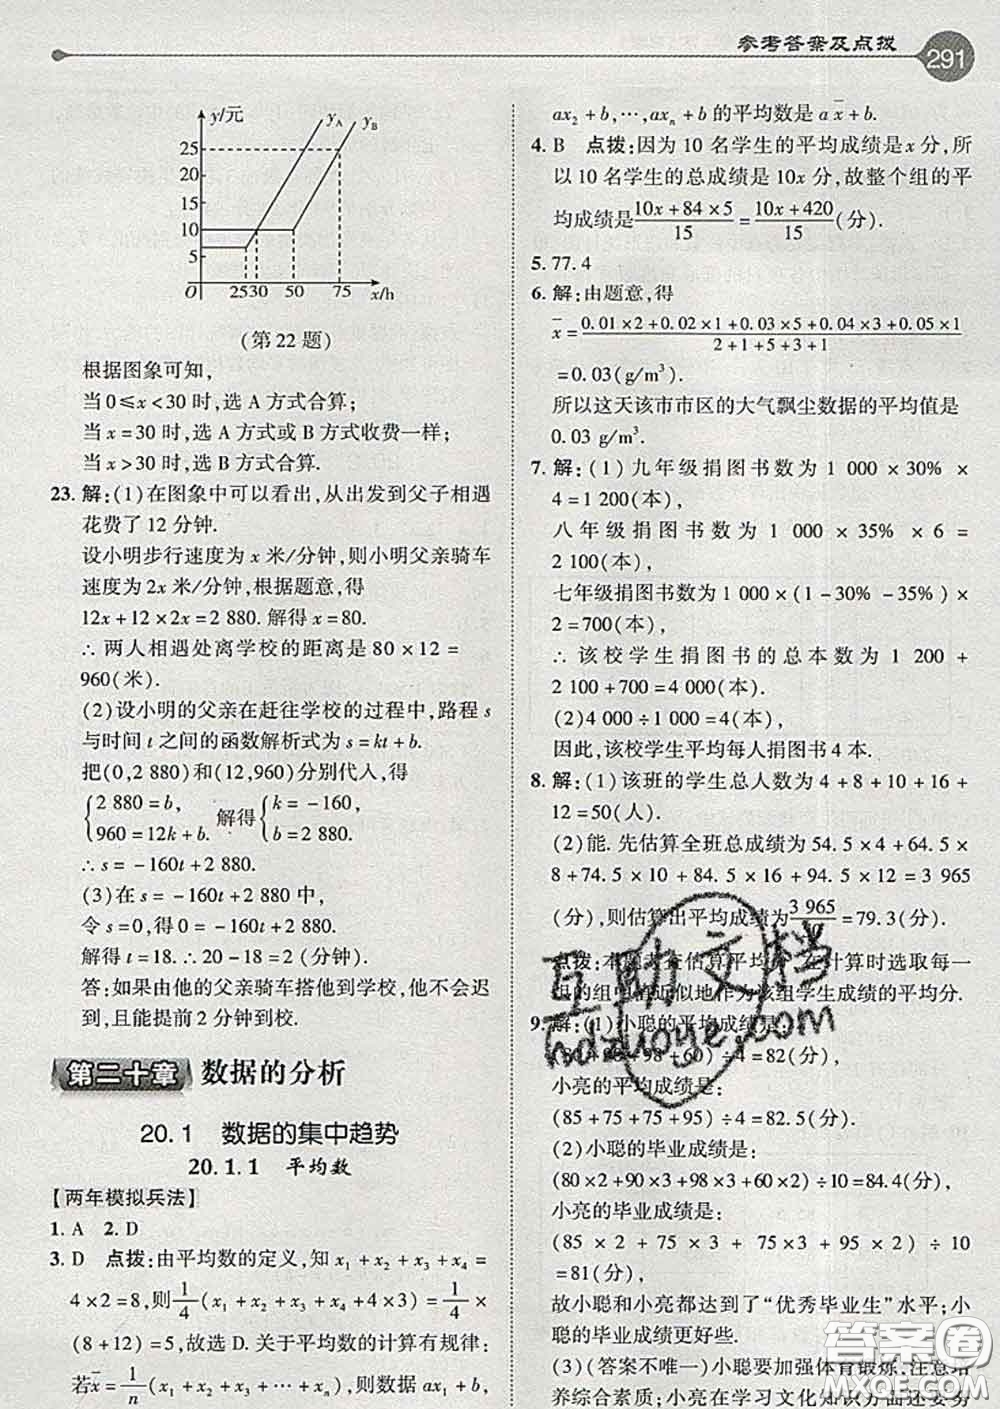 参考答案及点拨
291
y/元
y_A
y_B
25
20
15
10
5
O
25 30 50 75 x/h
(第22题)
根据图象可知,
当0≤x<30时,选A方式合算;
当x=30时,选A方式或B方式收费一样;
当x>30时,选B方式合算.
23. 解:(1)在图象中可以看出,从出发到父子相遇
花费了12分钟.
设小明步行速度为x米/分钟,则小明父亲骑车
速度为2x米/分钟,根据题意,得
12x+12×2x=2 880. 解得x=80.
∴两人相遇处离学校的距离是80×12=
960(米).
(2)设小明的父亲在赶往学校的过程中,路程s
与时间t之间的函数解析式为s=kt+b.
把(0,2 880)和(12,960)分别代入,得
{2 880=b, 960=12k+b. 解得{k=-160, b=2 880.
∴s=-160t+2 880.
(3)在s=-160t+2 880中,
令s=0,得0=-160t+2 880.
解得t=18. ∴20-18=2(分钟).
答:如果由他的父亲骑车搭他到学校,他不会迟
到,且能提前2分钟到校.
第二十章 数据的分析
20.1 数据的集中趋势
20.1.1 平均数
【两年模拟兵法】
1. A 2. D
3. D 点拨:由平均数的定义,知x₁+x₂+x₃+x₄=
4×2=8,则1/4(x₁+x₂+x₃+x₄+4×3)=1/4×
(8+12)=5,故选D. 关于平均数的计算有规律:
若x̄=1/n(x₁+x₂+…+xₙ),则数据ax₁+b,
ax₂+b,…,axₙ+b的平均数是ax̄+b.
4. B 点拨:因为10名学生的平均成绩是x分,所
以10名学生的总成绩是10x分,故整个组的平
均成绩是(10x+84×5)/15=(10x+420)/15(分).
5. 77.4
6. 解:由题意,得
x̄=(0.01×2+0.02×1+0.03×5+0.04×3+0.05×1)/(2+1+5+3+1)
=0.03(g/m³).
所以这天该市市区的大气飘尘数据的平均值是
0.03 g/m³.
7. 解:(1)九年级捐图书数为1 000×30%×
4=1 200(本),
八年级捐图书数为1 000×35%×6=
2 100(本),
七年级捐图书数为1 000×(1-30%-35%)×
2=700(本),
∴该校学生捐图书的总本数为1 200+
2 100+700=4 000(本).
(2)4 000÷1 000=4(本),
因此,该校学生平均每人捐图书4本.
8. 解:(1)该班的学生总人数为4+8+10+16+
12=50(人).
(2)能. 先估算全班总成绩为54.5×4+64.5×
8+74.5×10+84.5×16+94.5×12=3 965
(分),则估算出平均成绩为3 965/50=79.3(分).
点拨:本题考查估算平均分,在计算时选取每一
组的组中值近似地作为该组学生成绩的平均分.
9. 解:(1)小聪的平均成绩是:
98+60)÷4=82(分),
小亮的平均成绩是:
(85+75+75+95)÷4=82.5(分).
(2)小聪的毕业成绩是:
(80×2+90×3+98×3+60×2)÷10=84.4(分),
小亮的毕业成绩是:
(85×2+75×3+75×3+95×2)÷10
=81(分),
故小聪和小亮都达到了“优秀毕业生”水平;小
聪的毕业成绩更好些.
(3)(答案不唯一)小聪要加强体育锻炼,注意培
养综合素质;小亮在学习文化知识方面还要努
互助文档
hdzuoye.com
答案圈
MXQE.COM